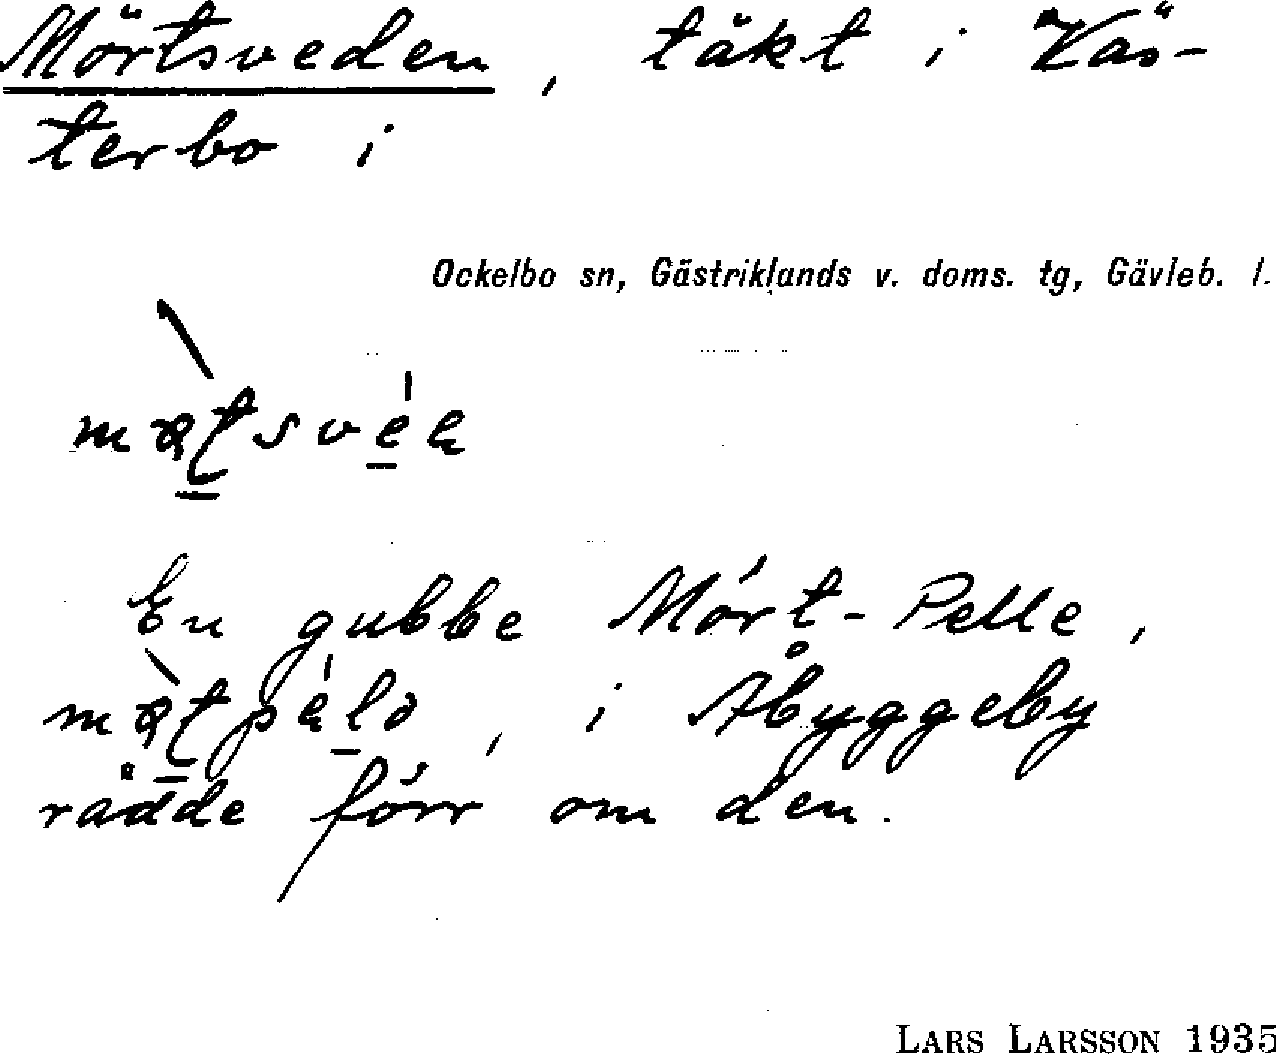 Mörtsveden, täkt i Väs-
terbo i
Ockelbo sn, Gästriklands v. doms. tg, Gävleb. l.
En gubbe Mört-Pelle,
, i Åbyggeby
rådde förr om den.
LARS LARSSON 1935